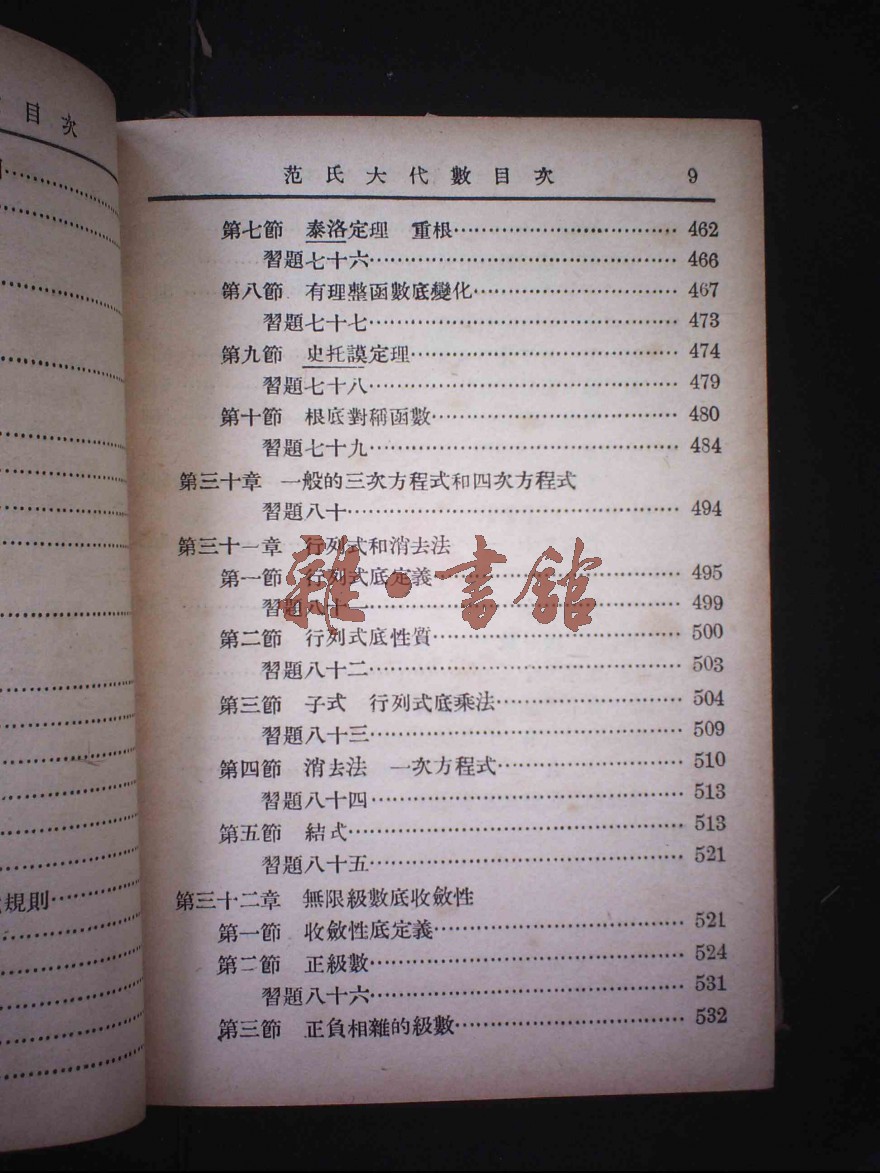 目次
范氏大代數目次 9
第七節 泰洛定理 重根 462
習題七十六 466
第八節 有理整函數底變化 467
習題七十七 473
第九節 史托謨定理 474
習題七十八 479
第十節 根底對稱函數 480
習題七十九 484
第三十章 一般的三次方程式和四次方程式
習題八十 494
第三十一章 行列式和消去法
第一節 行列式底定義 495
習題八十一 499
第二節 行列式底性質 500
習題八十二 503
第三節 子式 行列式底乘法 504
習題八十三 509
第四節 消去法 一次方程式 510
習題八十四 513
第五節 結式 513
習題八十五 521
第三十二章 無限級數底收斂性
第一節 收斂性底定義 521
第二節 正級數 524
習題八十六 531
第三節 正負相雜的級數 532
規則
雜·書館